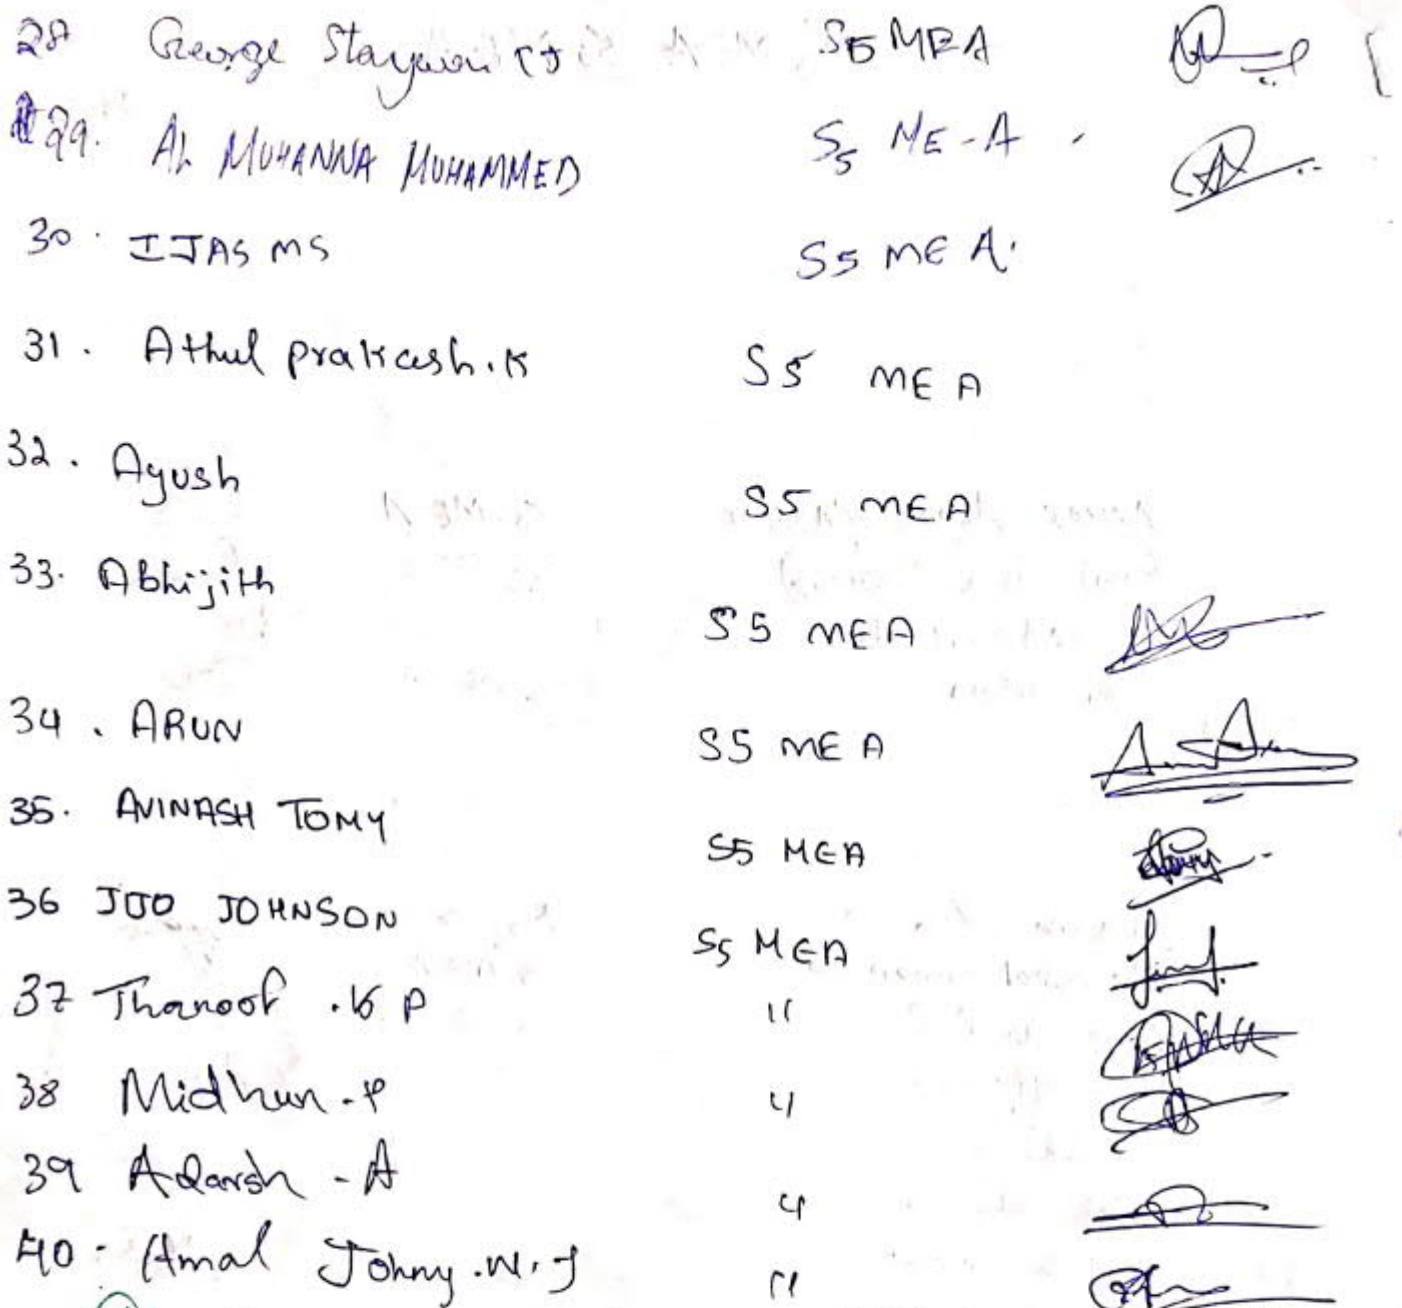 28 George
S5 MEA
29. AL MUHANNA MUHAMMED S5 ME-A
30. IJAS MS S5 MEA.
31. Athul prakash.K S5 MEA
32. Ayush S5 MEA
33. Abhijith S5 MEA
34. ARUN S5 MEA
35. AVINASH TOMY S5 MEA
36 JIJO JOHNSON S5 MEA
37 Thanoof .K P "
38 Midhun.P "
39 Adarsh - A "
40. Amal Johny. "